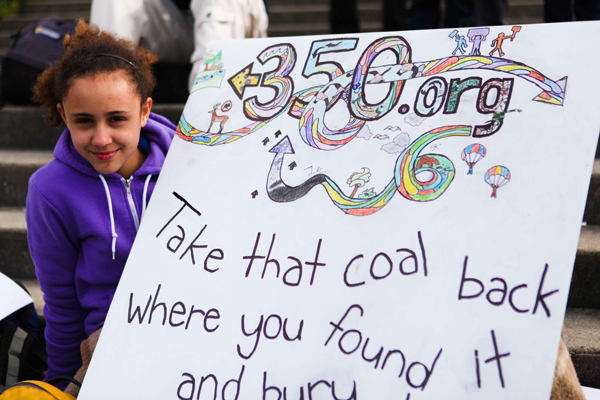 350.org
Take that coal back
where you found it
and bury